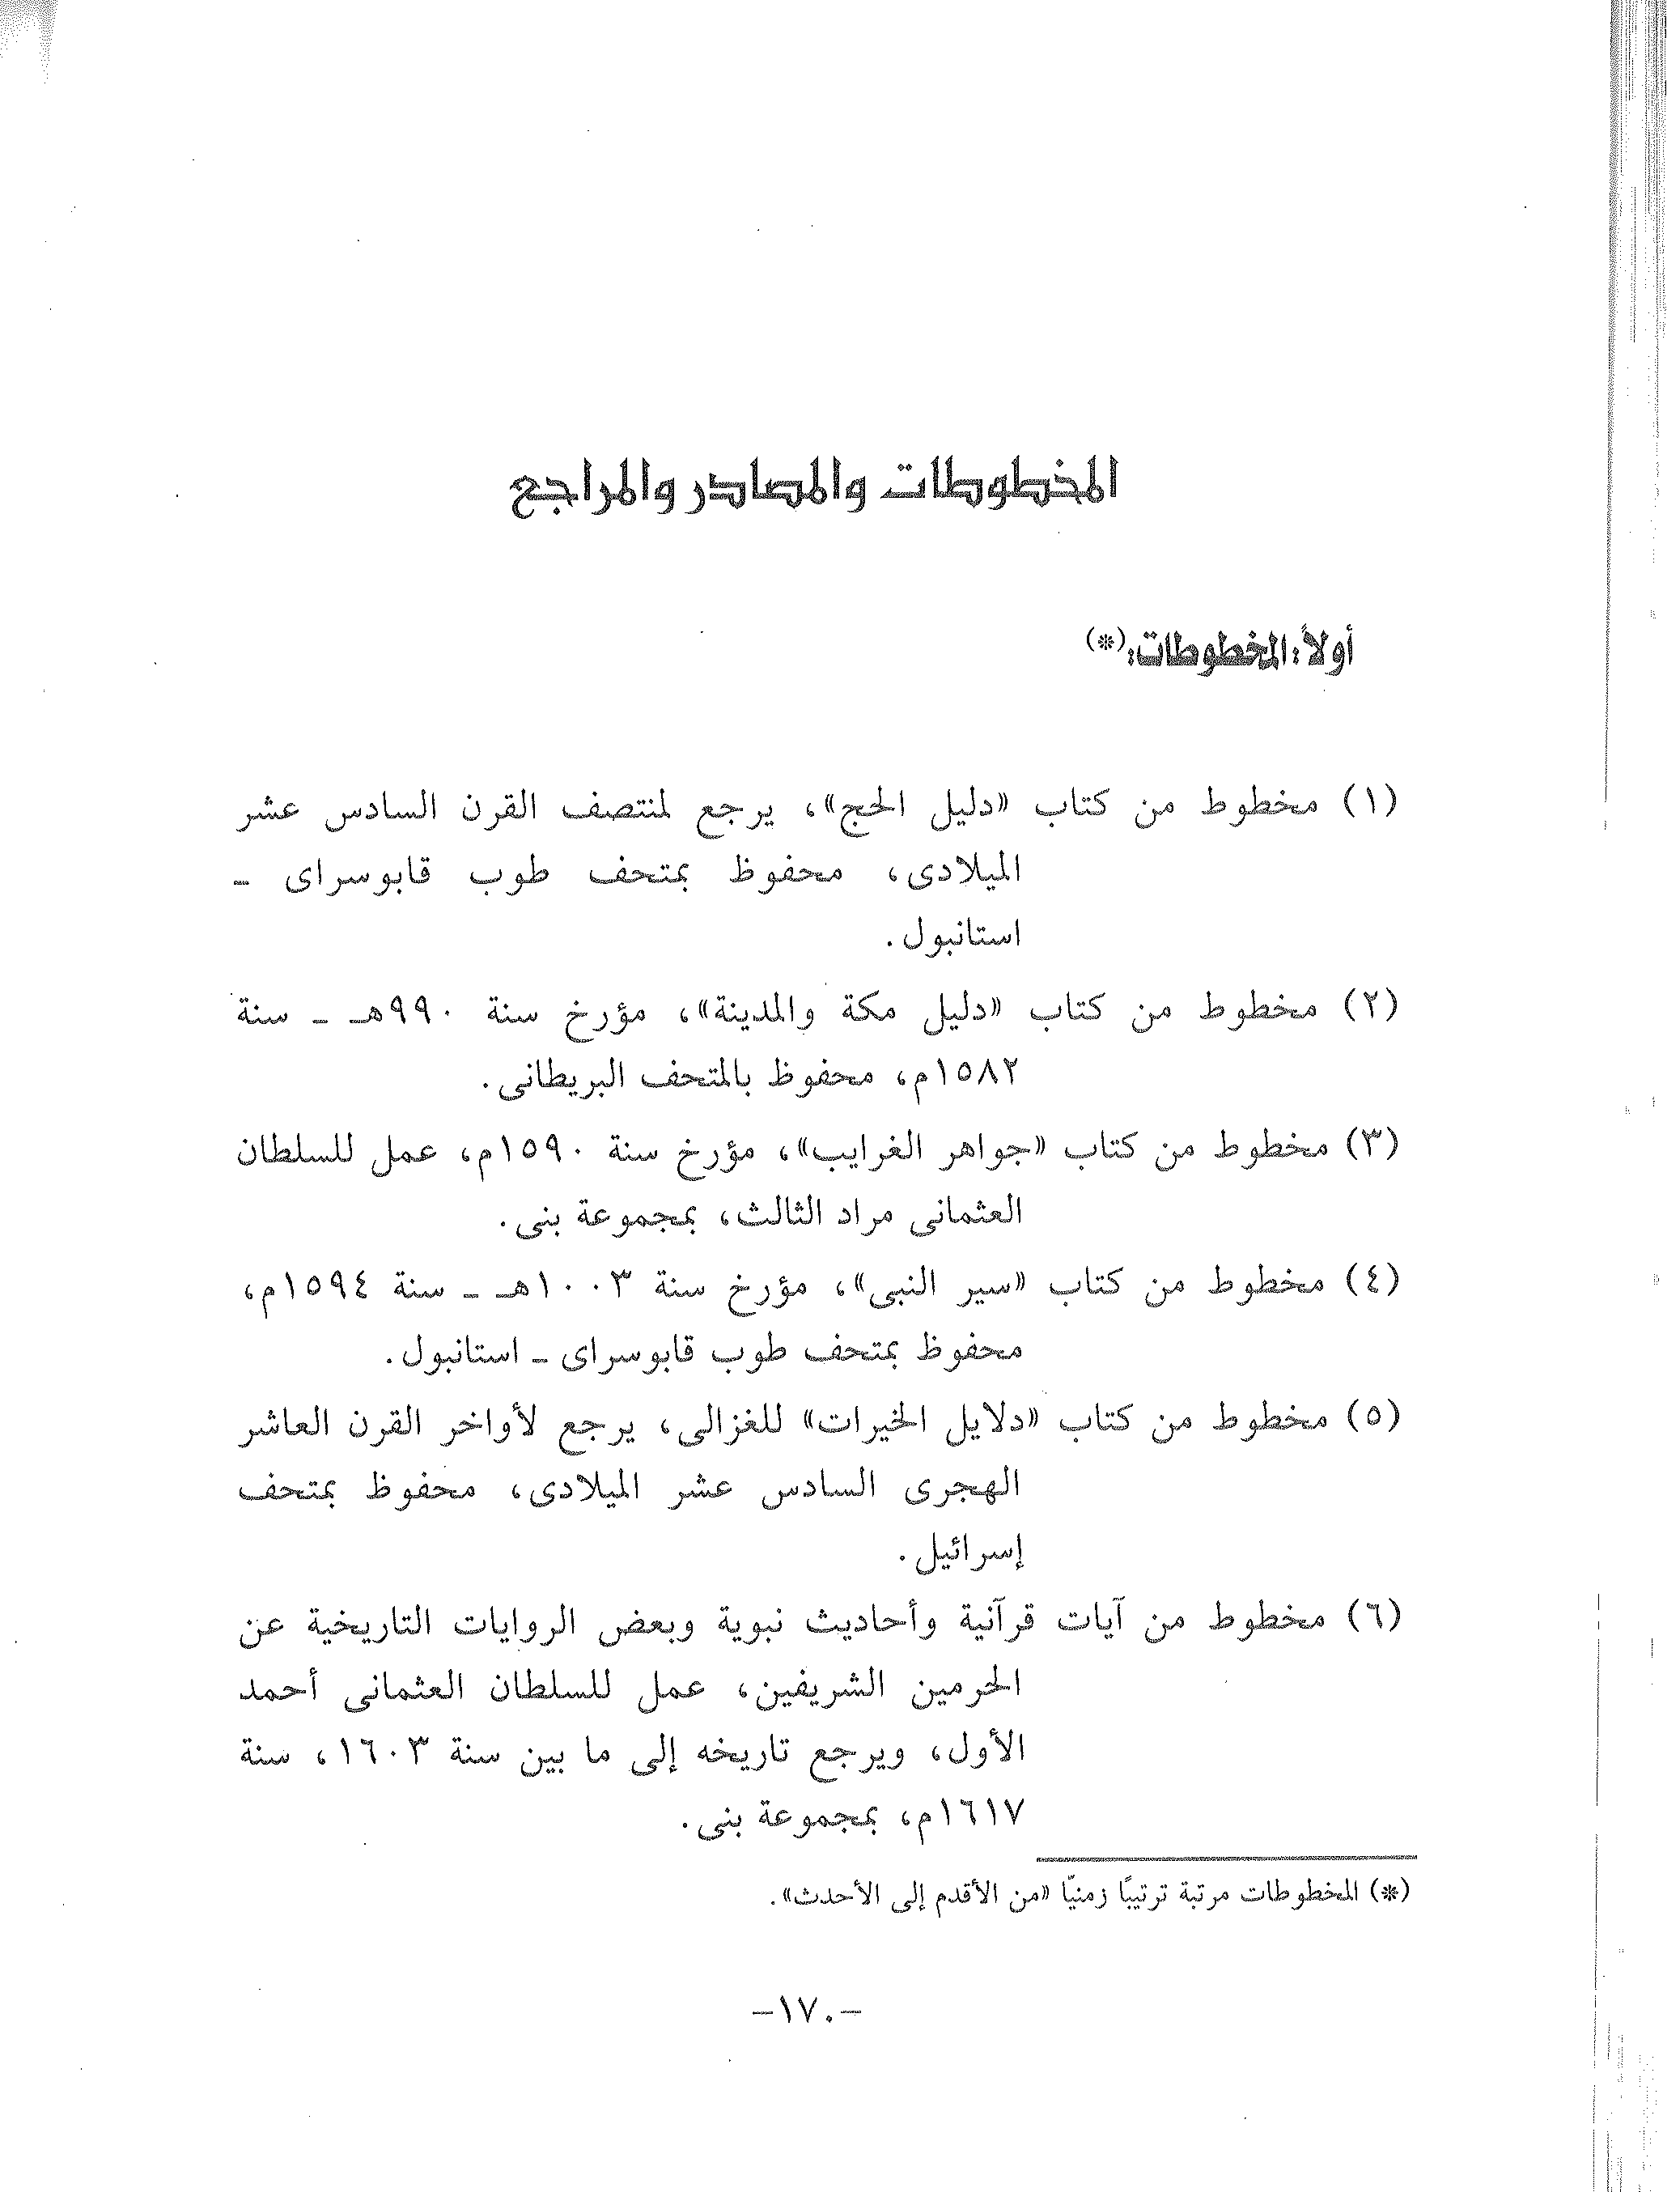 المخطوطات والمصادر والمراجع
أولاً: المخطوطات: (*)
(١) مخطوط من كتاب «دليل الحج»، يرجع لمنتصف القرن السادس عشر
الميلادى، محفوظ بمتحف طوب قابوسراى ـ
استانبول.
(٢) مخطوط من كتاب «دليل مكة والمدينة»، مؤرخ سنة ٩٩٠هـ ـ سنة
١٥٨٢م، محفوظ بالمتحف البريطانى.
(٣) مخطوط من كتاب «جواهر الغرايب»، مؤرخ سنة ١٥٩٠م، عمل للسلطان
العثمانى مراد الثالث، بمجموعة بنى.
(٤) مخطوط من كتاب «سير النبى»، مؤرخ سنة ١٠٠٣هـ ـ سنة ١٥٩٤م،
محفوظ بمتحف طوب قابوسراى ـ استانبول.
(٥) مخطوط من كتاب «دلايل الخيرات» للغزالى، يرجع لأواخر القرن العاشر
الهجرى السادس عشر الميلادى، محفوظ بمتحف
إسرائيل.
(٦) مخطوط من آيات قرآنية وأحاديث نبوية وبعض الروايات التاريخية عن
الحرمين الشريفين، عمل للسلطان العثمانى أحمد
الأول، ويرجع تاريخه إلى ما بين سنة ١٦٠٣، سنة
١٦١٧م، بمجموعة بنى.
(*) المخطوطات مرتبة ترتيبًا زمنيًا «من الأقدم إلى الأحدث».
-١٧٠-